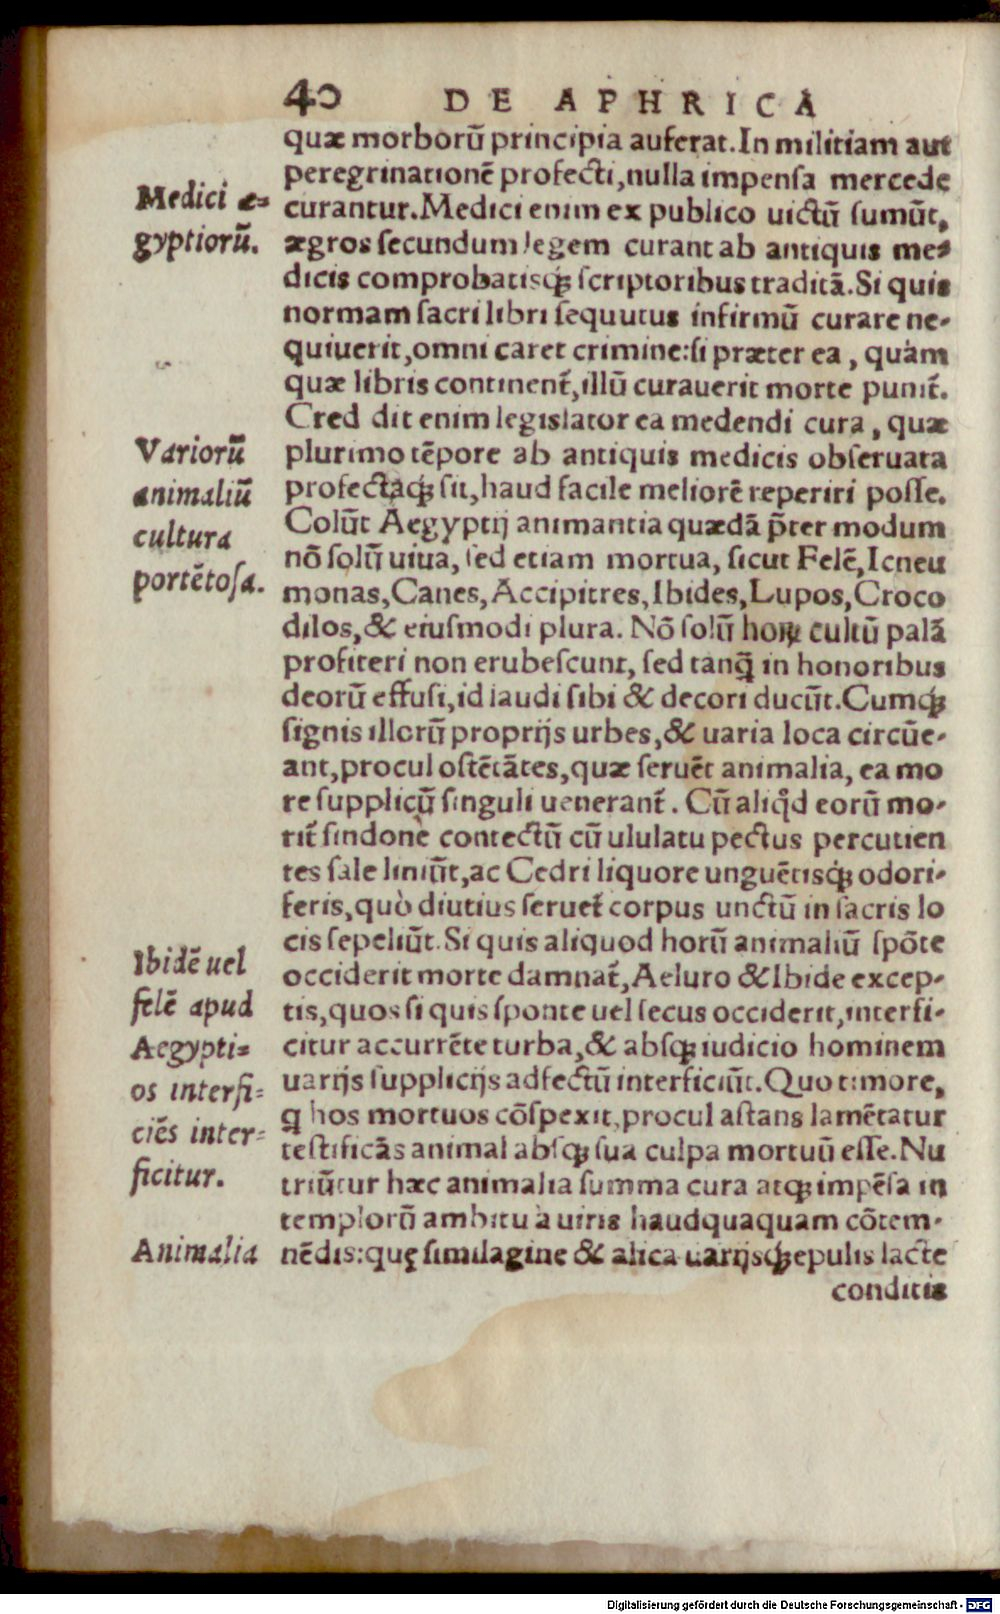 40 DE APHRICA
quæ morborũ principia auferat. In militiam aut
peregrinationẽ profecti, nulla impensa mercede
curantur. Medici enim ex publico uictũ sumũt,
ægros secundum legem curant ab antiquis me-
dicis comprobatisq; scriptoribus traditã. Si quis
normam sacri libri sequutus infirmũ curare ne-
quiuerit, omni caret crimine: si præter ea, quàm
quæ libris continent᷑, illũ curauerit morte punit᷑.
Cred dit enim legislator ea medendi cura, quæ
plurimo tẽpore ab antiquis medicis obseruata
profectaq; sit, haud facile meliorẽ reperiri posse.
Colũt Aegyptij animantia quædã p̃ter modum
nõ solũ uiua, sed etiam mortua, sicut Felẽ, Icneu
monas, Canes, Accipitres, Ibides, Lupos, Croco
dilos, & eiusmodi plura. Nõ solũ horꝝ cultũ palã
profiteri non erubescunt, sed tanq̃ in honoribus
deorũ effusi, id laudi sibi & decori ducũt. Cumq;
signis illorũ proprijs urbes, & uaria loca circũe-
ant, procul ostẽtãtes, quæ seruẽt animalia, ea mo
re supplicũ singuli uenerant᷑. Cũ aliqd eorũ mo-
rit᷑ sindone contectũ cũ ululatu pectus percutien
tes sale liniũt, ac Cedri liquore unguẽtisq; odori-
feris, quò diutius seruet᷑ corpus unctũ in sacris lo
cis sepeliũt. Si quis aliquod horũ animaliũ spõte
occiderit morte damnat᷑, Aeluro & Ibide excep-
tis, quos si quis sponte uel secus occiderit, interfi-
citur accurrẽte turba, & absq; iudicio hominem
uarijs supplicijs adfectũ interficiũt. Quo timore,
q hos mortuos cõspexit, procul astans lamẽtatur
testificãs animal absq; sua culpa mortuũ esse. Nu
triũtur hæc animalia summa cura atq; impẽsa in
templorũ ambitu à uiris haudquaquam cõtem-
nẽdis: quę similagine & alica uarijsq; epulis lacte
conditis
Medici æ-
gyptiorũ.
Variorũ
animaliũ
cultura
portẽtosa.
Ibidẽ uel
felẽ apud
Aegypti-
os interfi-
ciẽs inter-
ficitur.
Animalia
Digitalisierung gefördert durch die Deutsche Forschungsgemeinschaft - DFG